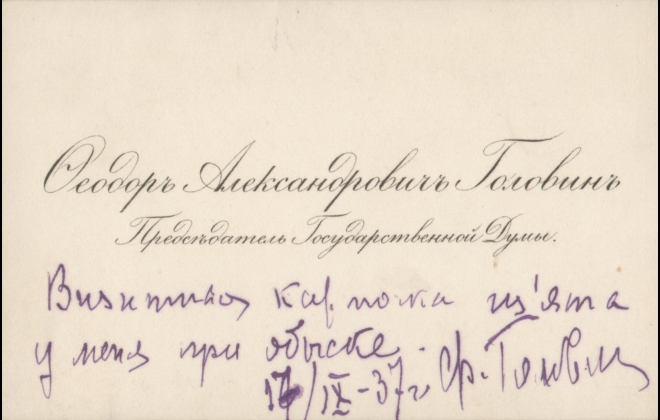 Ѳеодоръ Александровичъ Головинъ
Предсѣдатель Государственной Думы.
Визитная карточка из'ята
у меня при обыске.
17/IX-37 г. Ф. Головин